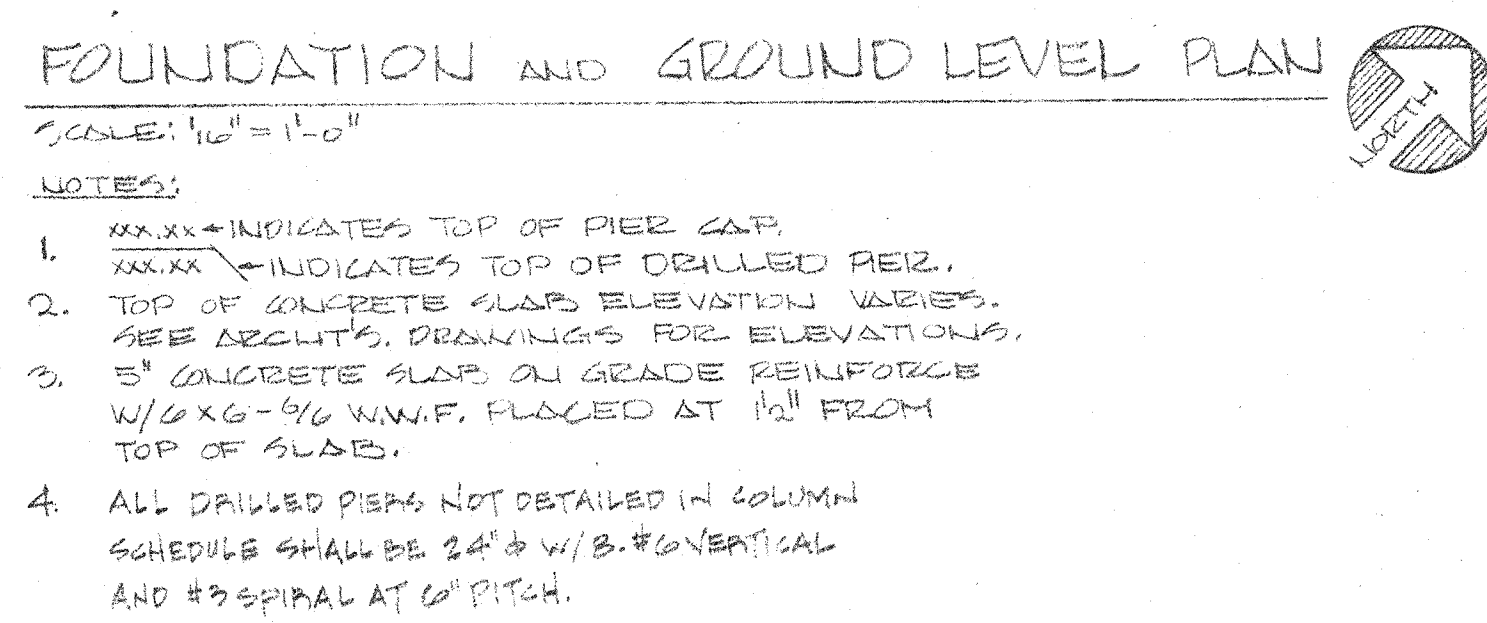 FOUNDATION AND GROUND LEVEL PLAN
NORTH
SCALE: 1/16" = 1'-0"
NOTES:
1. XXX.XX INDICATES TOP OF PIER CAP.
XXX.XX INDICATES TOP OF DRILLED PIER.
2. TOP OF CONCRETE SLAB ELEVATION VARIES.
SEE ARCHT'S. DRAWINGS FOR ELEVATIONS.
3. 5" CONCRETE SLAB ON GRADE REINFORCE
W/6X6-6/6 W.W.F. PLACED AT 1 1/2" FROM
TOP OF SLAB.
4. ALL DRILLED PIERS NOT DETAILED IN COLUMN
SCHEDULE SHALL BE 24"ϕ W/8-#6 VERTICAL
AND #3 SPIRAL AT 6" PITCH.